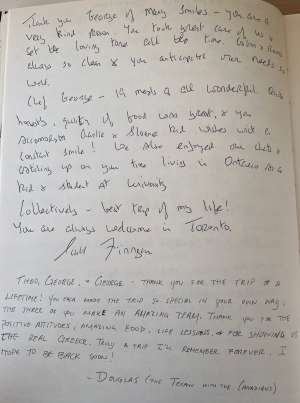 Thank you George of Many Smiles - you are a
very kind person. You took great care of us &
set the loving tone all the time. Cabin & rooms
always so clean & you anticipate when needs so
well.
Chef George - 19 meals & all wonderful Greek
variety of food was great, & you
accommodate Charlie &
constant smile! We also enjoyed our chats &
catching up on your time living in Ontario as a
kid & student at University
Collectively - best trip of my life!
You are always welcome in Toronto.
Finnigan
Theo, George, & George - thank you for the trip of a
lifetime! You each made the trip so special in your own way.
The three of you make an amazing team. Thank you for the
positive attitudes, amazing food, life lessons, & for showing us
the real Greece. Truly a trip I'll remember forever. I
hope to be back soon!
- Douglas (the Texan with the Canadians)